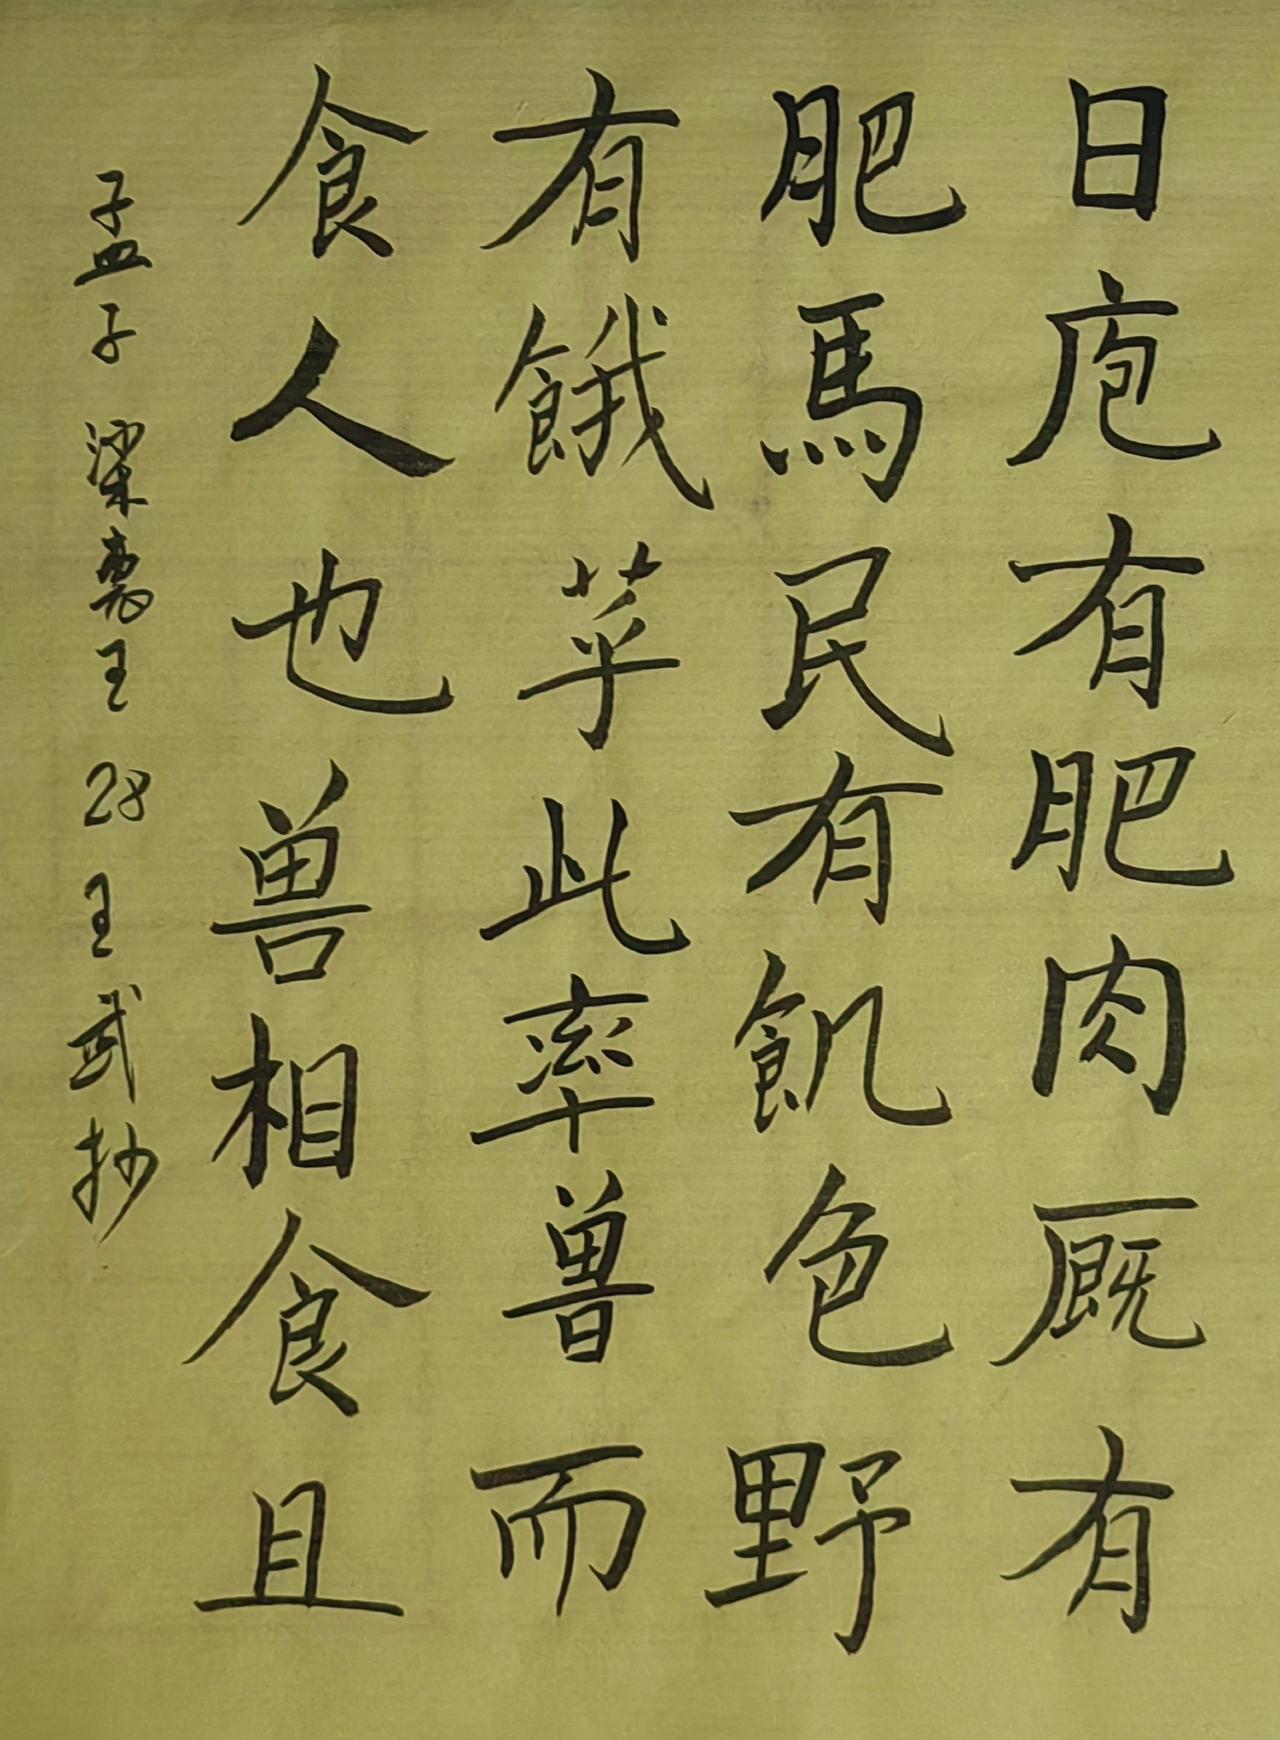 日庖有肥肉厩有
肥馬民有飢色野
有餓莩此率兽而
食人也兽相食且
孟子 梁惠王 28 王武抄